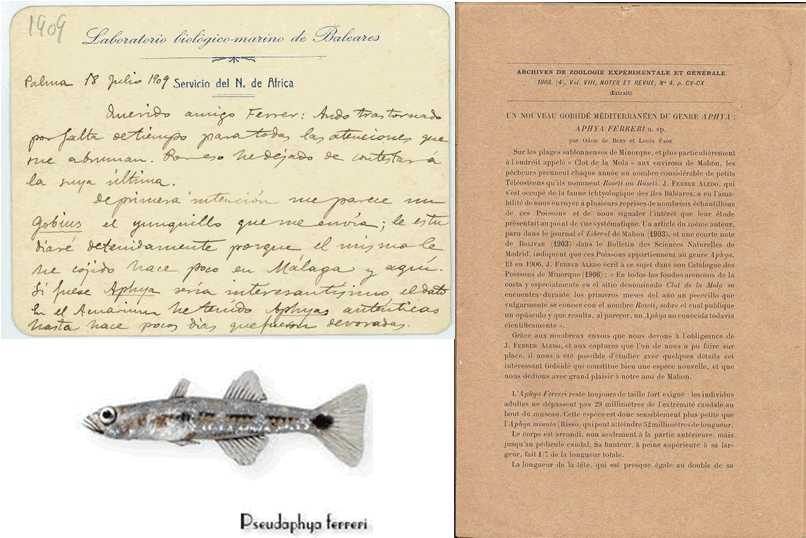 1909
Laboratorio biológico-marino de Baleares
Palma 18 Julio 1909 Servicio del N. de Africa
Querido amigo Ferrer: Ando trastornado
por falta de tiempo para todas las atenciones que
me abruman. Por eso he dejado de contestar a
la suya última.
De primera intención me parece un
Gobius el yunquillo que me envía; le estu
diaré detenidamente porque el mismo le
he cojido hace poco en Málaga y aquí.
Si fuese Aphya sería interesantísimo el dato
En el Acuarium he tenido Aphyas auténticas
hasta hace pocos días que fueron devoradas.
Pseudaphya ferreri
ARCHIVES DE ZOOLOGIE EXPÉRIMENTALE ET GÉNÉRALE
1908. (4), Vol. VIII, NOTES ET REVUE, Nº 4, p. CV-CX
(Extrait)
UN NOUVEAU GOBIIDÉ MÉDITERRANÉEN DU GENRE APHYA :
APHYA FERRERI n. sp.
par Odon de Buen et Louis Fage
Sur les plages sablonneuses de Minorque, et plus particulièrement
à l'endroit appelé « Clot de la Mola » aux environs de Mahon, les
pêcheurs prennent chaque année un nombre considérable de petits
Téléostéens qu'ils nomment Rosetí ou Roseti. J. FERRER ALEDO, qui
s'est occupé de la faune ichtyologique des îles Baléares, a eu l'ama-
bilité de nous envoyer à plusieurs reprises de nombreux échantillons
de ces Poissons et de nous signaler l'intérêt que leur étude
présentait au point de vue systématique. Un article du même auteur,
paru dans le journal el Liberal de Mahon (1903), et une courte note
de BOLIVAR (1903) dans le Bulletin des Sciences Naturelles de
Madrid, indiquent que ces Poissons appartiennent au genre Aphya.
Et en 1906, J. FERRER ALEDO écrit à ce sujet dans son Catalogue des
Poissons de Minorque (1906) : « En todos los fondos arenosos de la
costa y especialmente en el sitio denominado Clot de la Mola se
encuentra durante los primeros meses del año un pececillo que
vulgarmente se conoce con el nombre Roseti, sobre el cual publiqué
un opúsculo y que resulta, al parecer, un Aphya no conocida todavía
cientificamente ».
Grâce aux nombreux envois que nous devons à l'obligeance de
J. FERRER ALEDO, et aux captures que l'un de nous a pu faire sur
place, il nous a été possible d'étudier avec quelques détails cet
intéressant Gobiidé qui constitue bien une espèce nouvelle, et que
nous dédions avec grand plaisir à notre ami de Mahon.
L'Aphya Ferreri reste toujours de taille fort exiguë : les individus
adultes ne dépassent pas 29 millimètres de l'extrémité caudale au
bout du museau. Cette espèce est donc sensiblement plus petite que
l'Aphya minuta (Risso) qui peut atteindre 52 millimètres de longueur.
Le corps est arrondi, non seulement à la partie antérieure, mais
jusqu'au pédicule caudal. Sa hauteur, à peine supérieure à sa lar-
geur, fait 1/7 de la longueur totale.
La longueur de la tête, qui est presque égale au double de sa